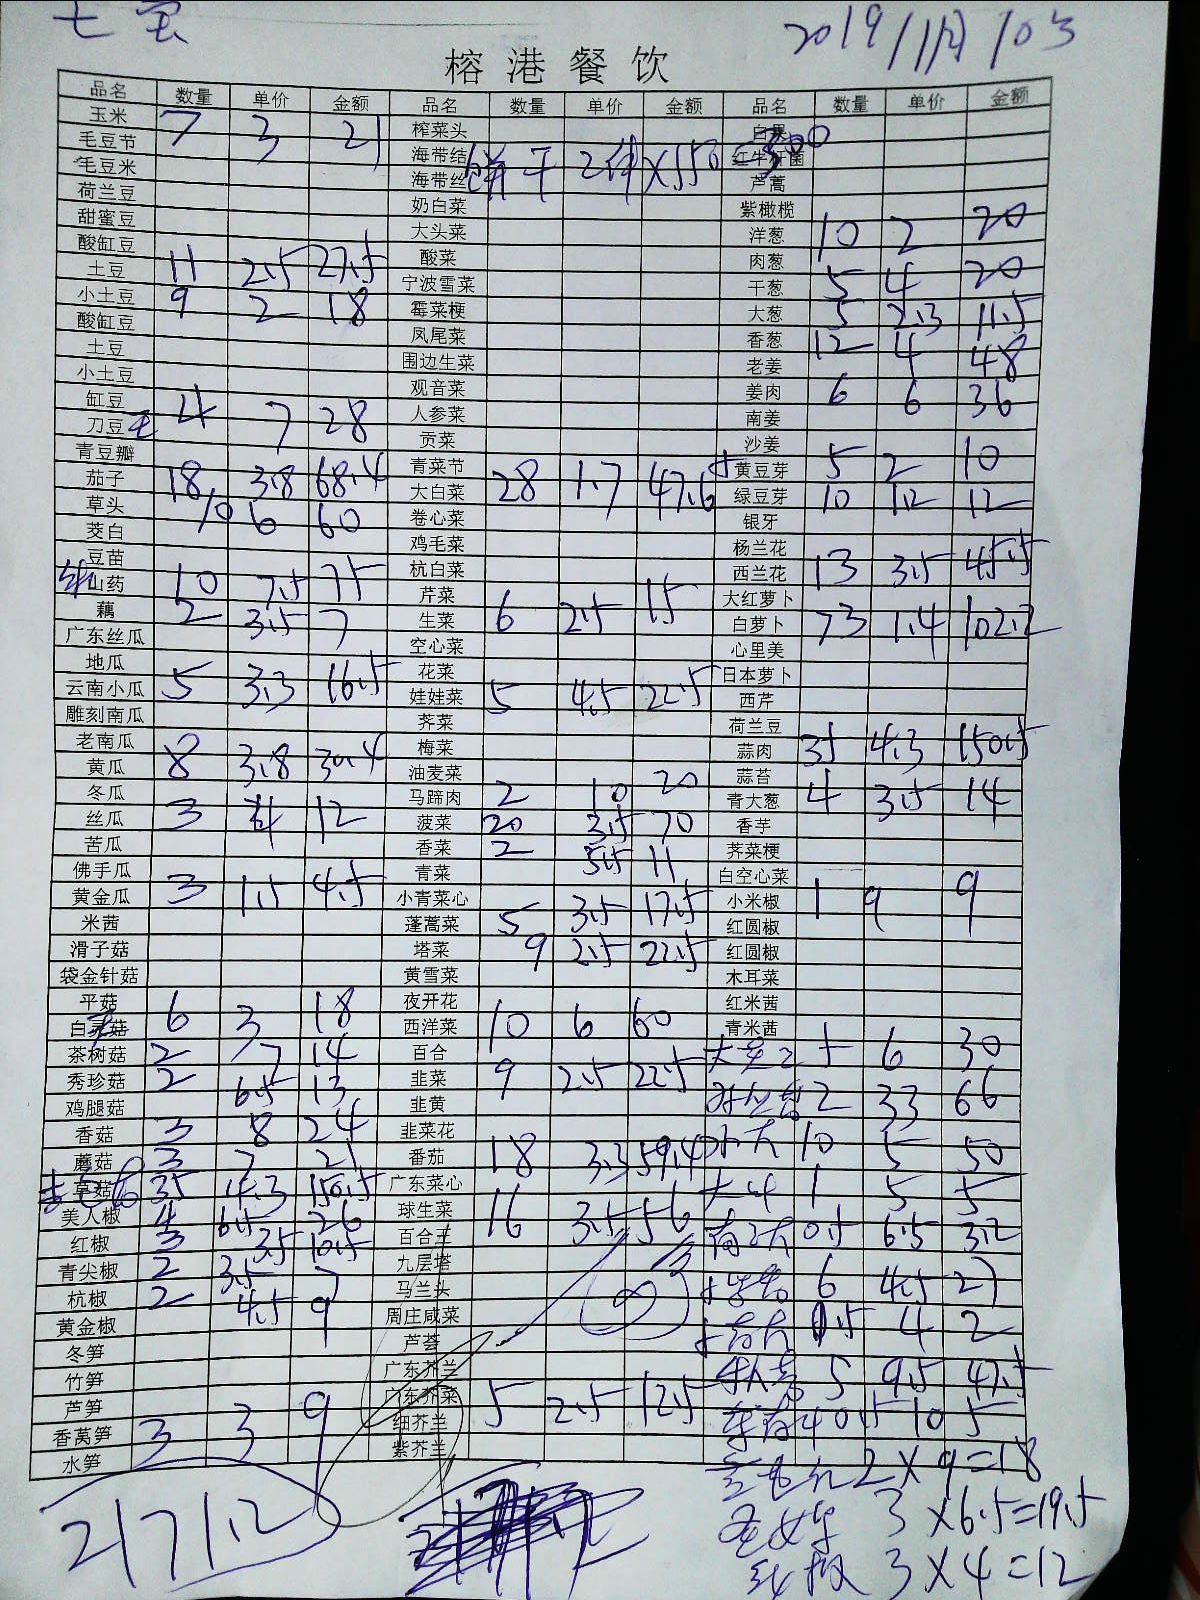 2019/11月/10号
榕港餐饮
品名 数量 单价 金额 品名 数量 单价 金额 品名 数量 单价 金额
玉米 7 3 21 榨菜头 白果
毛豆节 海带结 饼干 2件 X550
毛豆米 海带丝 芦蒿
荷兰豆 奶白菜 紫橄榄
甜蜜豆 大头菜 洋葱 10 2 20
酸缸豆 酸菜 肉葱
土豆 11 2.5 27.5 宁波雪菜 干葱 5 4 20
小土豆 9 2 18 霉菜梗 大葱 5 2.3 11.5
酸缸豆 凤尾菜 香葱 12 4 48
土豆 围边生菜 老姜
小土豆 观音菜 姜肉 6 6 36
缸豆 4 7 28 人参菜 南姜
刀豆 贡菜 沙姜
青豆瓣 青菜节 黄豆芽 5 2 10
茄子 18 3.8 68.4 大白菜 28 1.7 47.6 绿豆芽 10 1.2 12
草头 10 6 60 卷心菜 银牙
茭白 鸡毛菜 杨兰花
豆苗 杭白菜 西兰花 13 3.5 45.5
山药 10 7.5 75 芹菜 大红萝卜
藕 2 3.5 7 生菜 6 2.5 15 白萝卜 73 1.4 102.2
广东丝瓜 空心菜 心里美
地瓜 花菜 日本萝卜
云南小瓜 5 3.3 16.5 娃娃菜 5 4.5 22.5 西芹
雕刻南瓜 荠菜 荷兰豆
老南瓜 梅菜 蒜肉 35 4.3 150.5
黄瓜 8 3.8 30.4 油麦菜 蒜苔
冬瓜 马蹄肉 2 10 20 青大葱 4 3.5 14
丝瓜 3 4 12 菠菜 20 3.5 70 香芋
苦瓜 香菜 2 5.5 11 荠菜梗
佛手瓜 青菜 白空心菜
黄金瓜 3 1.5 4.5 小青菜心 小米椒 1 9 9
米茜 蓬蒿菜 5 3.5 17.5 红圆椒
滑子菇 塔菜 9 2.5 22.5 红圆椒
袋金针菇 黄雪菜 木耳菜
平菇 夜开花 红米茜
6 3 18 西洋菜 10 6 60 青米茜
茶树菇 2 7 14 百合 5 6 30
秀珍菇 2 6.5 13 韭菜 9 2.5 22.5 2 33 66
鸡腿菇 韭黄
香菇 3 8 24 韭菜花 10 5 50
蘑菇 3 7 21 番茄 18 3.3 59.4
草菇 35 4.3 150.5 广东菜心 1 5 5
美人椒 4 6.5 26 球生菜 16 3.5 56 0.5 6.5 3.2
红椒 3 3.5 10.5 百合王
青尖椒 2 3.5 7 九层塔 6 4.5 27
杭椒 2 4.5 9 马兰头
黄金椒 周庄咸菜 4 2
冬笋 芦荟
竹笋 广东芥兰 5 9.5 47.5
芦笋 广东芥菜 5 2.5 12.5 0.5 10 5
香莴笋 3 3 9 细芥兰
水笋 紫芥兰 2X9=18
2171.2 3X6.5=19.5
3X4=12